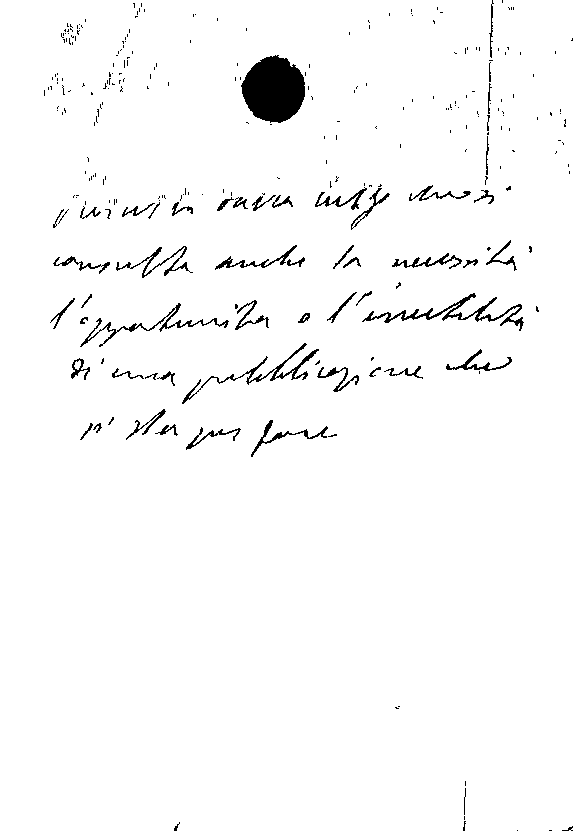 consulta anche la necessità
l'opportunità o l'inutilità
di una pubblicazione che
si sta per fare